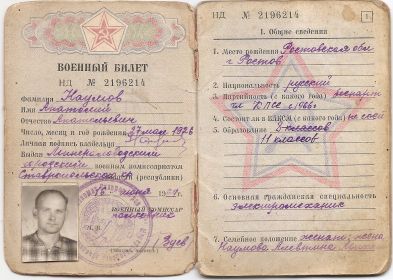 ВОЕННЫЙ БИЛЕТ
НД № 2196214
Фамилия Наумов
Имя Анатолий
Отчество Анатольевич
Число, месяц и год рождения 27 мая 1926
Личная подпись владельца
Выдан Минераловодским
городским военным комиссариатом
Ставропольского (республики)
июня 19
ВОЕННЫЙ КОМИССАР
полковник
Зуев
НД № 2196214
1
I. Общие сведения
1. Место рождения Ростовская обл
г Ростов
2. Национальность русский
3. Партийность (с какого года)
чл КПСС с 1966г
4. Состоит ли в ВЛКСМ (с какого года) не сост
5. Образование 8 классов
11 классов
6. Основная гражданская специальность
электромеханик
7. Семейное положение женат: жена
Наумова